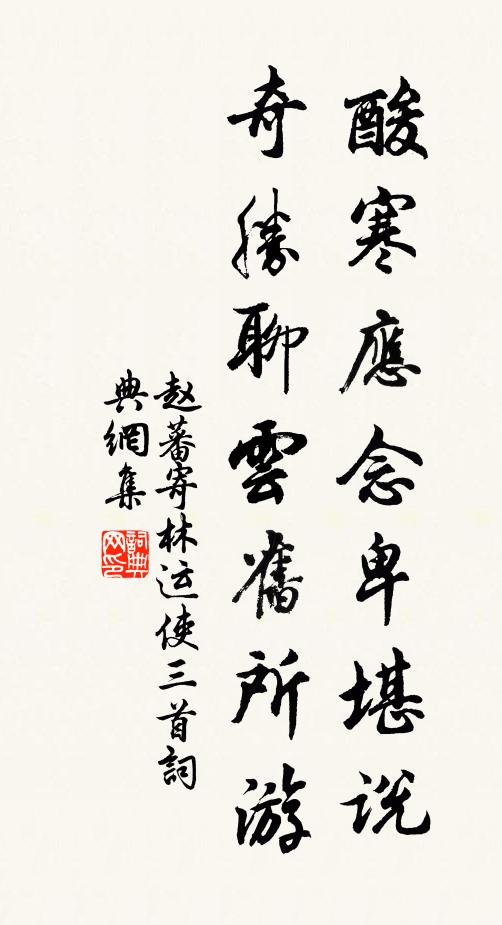 酸寒應念卑堪説
奇勝聊雲舊所游
赵蕃寄林运使三首詞
典網集
詞典网印